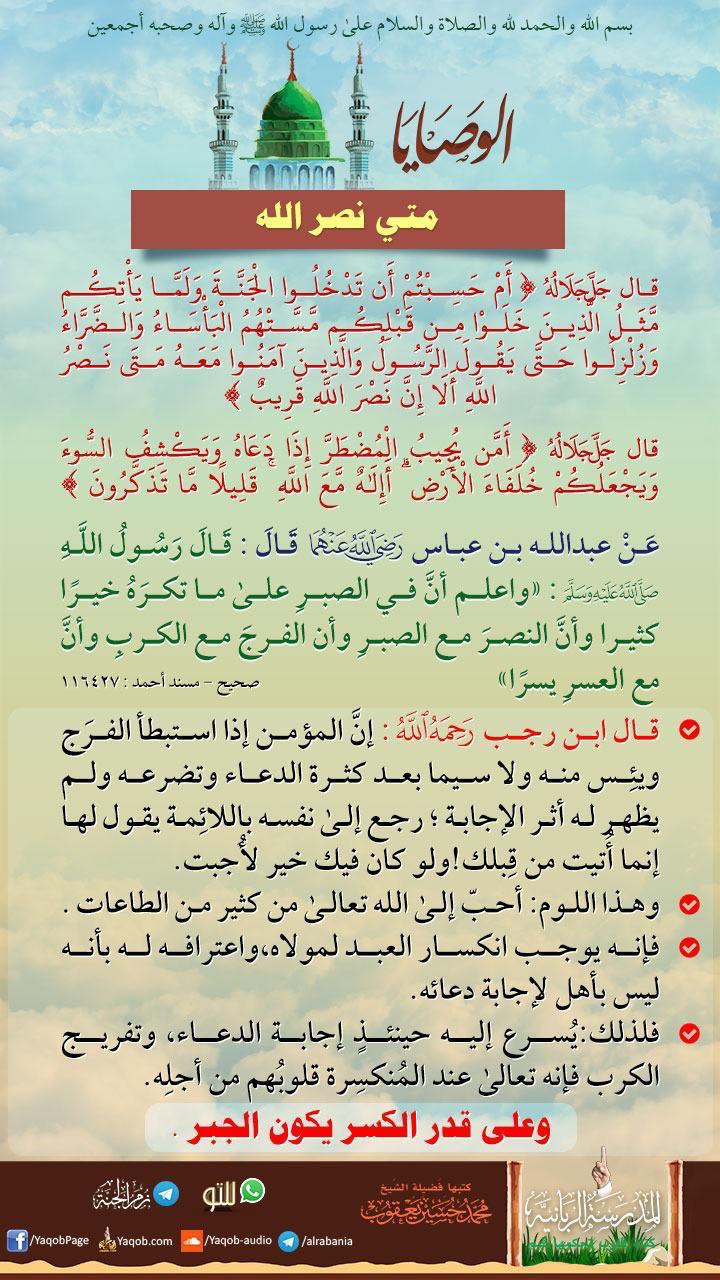 بسم الله والحمد لله والصلاة والسلام علىٰ رسول الله ﷺ وآله وصحبه أجمعين
الوَصَايَا
متي نصر الله
قال جَلَّجَلَالُهُ ﴿ أَمْ حَسِبْتُمْ أَن تَدْخُلُوا الْجَنَّةَ وَلَمَّا يَأْتِكُم
مَّثَلُ الَّذِينَ خَلَوْا مِن قَبْلِكُم مَّسَّتْهُمُ الْبَأْسَاءُ وَالضَّرَّاءُ
وَزُلْزِلُوا حَتَّى يَقُولَ الرَّسُولُ وَالَّذِينَ آمَنُوا مَعَهُ مَتَى نَصْرُ
اللَّهِ أَلَا إِنَّ نَصْرَ اللَّهِ قَرِيبٌ ﴾
قال جَلَّجَلَالُهُ ﴿ أَمَّن يُجِيبُ الْمُضْطَرَّ إِذَا دَعَاهُ وَيَكْشِفُ السُّوءَ
وَيَجْعَلُكُمْ خُلَفَاءَ الْأَرْضِ ۗ أَإِلَهٌ مَّعَ اللَّهِ ۚ قَلِيلًا مَّا تَذَكَّرُونَ ﴾
عَنْ عبدالله بن عباس رَضِيَ اللَّهُ عَنْهُمَا قَالَ : قَالَ رَسُولُ اللَّهِ
صَلَّى اللَّهُ عَلَيْهِ وَسَلَّمَ : «واعلم أنَّ في الصبرِ علىٰ ما تكرَهُ خيرًا
كثيرا وأنَّ النصرَ مع الصبرِ وأن الفرجَ مع الكربِ وأنَّ
مع العسرِ يسرًا» صحيح – مسند أحمد : ١١٦٤٢٧
قال ابن رجب رَحِمَهُ اللَّهُ : إنَّ المؤمن إذا استبطأ الفرَج
ويئِس منه ولا سيما بعد كثرة الدعاء وتضرعه ولم
يظهر له أثر الإجابة ؛ رجع إلىٰ نفسه باللائِمة يقول لها
إنما أُتيت من قِبلك!ولو كان فيك خير لأُجبت.
وهذا اللوم: أحبّ إلىٰ الله تعالىٰ من كثير من الطاعات .
فإنه يوجب انكسار العبد لمولاه،واعترافه له بأنه
ليس بأهل لإجابة دعائه.
فلذلك:يُسرع إليه حينئذٍ إجابة الدعاء، وتفريج
الكرب فإنه تعالىٰ عند المُنكسِرة قلوبُهم من أجلِه.
وعلى قدر الكسر يكون الجبر .
المدرسة الربانية
كتبها فضيلة الشيخ
محمد حسين يعقوب
للتو
زمر الجنة
/YaqobPage
Yaqob.com
/Yaqob-audio
/alrabania